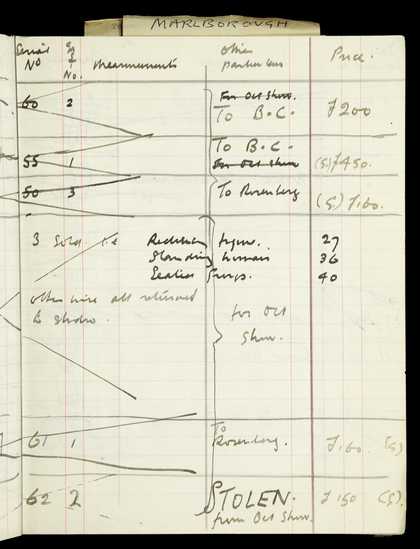 MARLBOROUGH
Serial No
No. Measurements
Other particulars
Price.
60 2 For Oct Show.
To B.C. £200
To B.C.
55 1 For Oct Show (S) £450.
50 3 To Rosenberg (S) £160.
3 Sold i.e Reclining figure. 27
Standing woman 36
Seated Group. 40
other wise all returned
to studio.
for Oct
Show.
To
61 1 Rosenberg. £160. (S)
62 2 STOLEN. £150 (S).
from Oct Show.